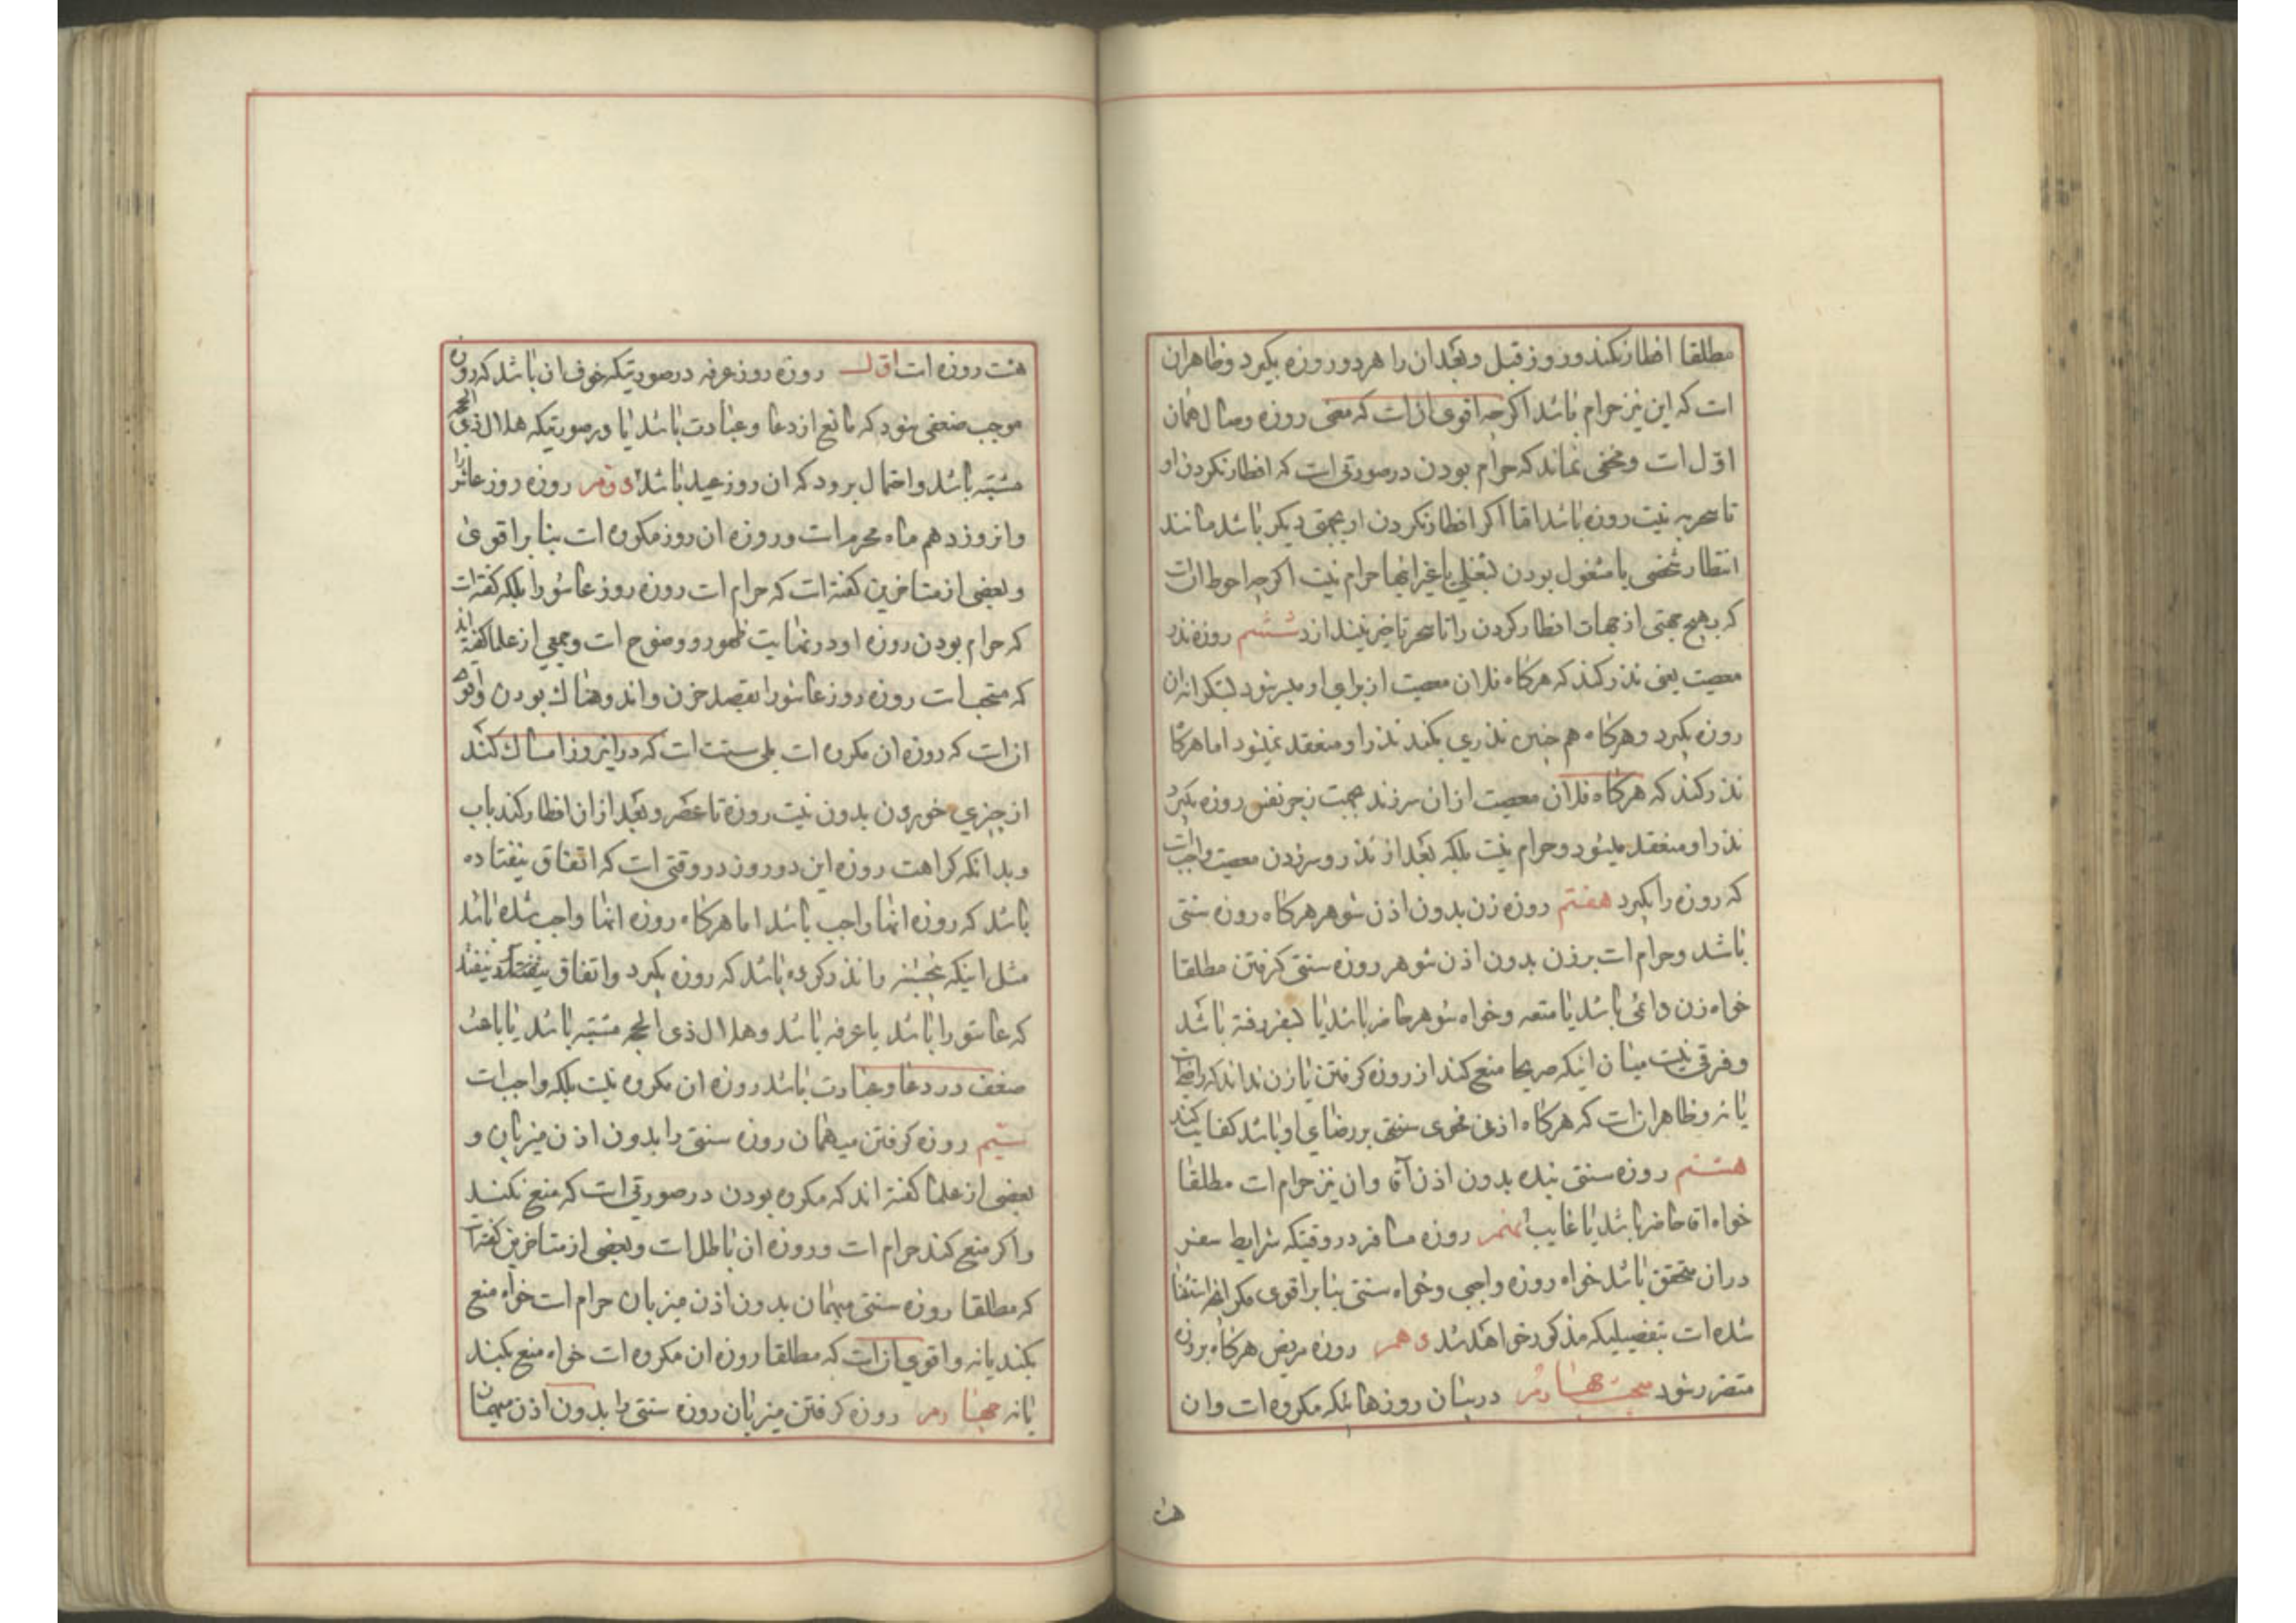 مطلقا افطار نکند و روز قبل و بعد ان را هر دو روزه بگیرد و ظاهر ان
است که این نیز حرام باشد اگرچه اقوی ان است که معنی روزه وصال همان
اول است و مخفی نماند که حرام بودن در صورتی است که افطار نکردن او
تا سحر به نیت روزه باشد اما اگر افطار نکردن او بجهتی دیگر باشد مانند
انتظار شخصی یا مشغول بودن بشغلی یا غیر اینها حرام نیست اگرچه احوط ان است
که بهیچ جهتی از جهات افطار کردن را تا سحر تاخیر نیندازد ششم روزه نذر
معصیت یعنی نذر کند که هرگاه فلان معصیت از برای او میسر شود بشکرانه ان
روزه بگیرد و هرگاه هم چنین نذری بکند نذر او منعقد نمیشود اما هرگاه
نذر کند که هرگاه فلان معصیت از ان سرزند بجهت زجر نفس روزه بگیرد
نذر او منعقد میشود و حرام نیست بلکه بعد از نذر و سرزدن معصیت واجب است
که روزه را بگیرد هفتم روزه زن بدون اذن شوهر هرگاه روزه سنتی
باشد و حرام است بر زن بدون اذن شوهر روزه سنتی گرفتن مطلقا
خواه زن دائمی باشد یا متعه و خواه شوهر حاضر باشد یا بسفر رفته باشد
و فرقی نیست میان اینکه صریحا منع کند از روزه گرفتن یا زن نداند که راضی است
یا نه و ظاهر ان است که هرگاه اذن فحوی سنتی بر رضای او باشد کفایت میکند
هشتم روزه سنتی بنده بدون اذن آقا و ان نیز حرام است مطلقا
خواه اقا حاضر باشد یا غایب نهم روزه مسافر در وقتیکه شرایط سفر
در ان متحقق باشد خواه روزه واجبی و خواه سنتی بنا بر اقوی مگر انچه استثنا
شده است بتفصیلیکه مذکور خواهد شد دهم روزه مریض هرگاه بروزه
متضرر شود مبحث چهارم در بیان روزهائیکه مکروه است و ان
هشت
هشت روزه است اول روزه روز عرفه در صورتیکه خوف ان باشد که روزه
موجب ضعفی شود که مانع از دعا و عبادت باشد یا در صورتیکه هلال ذی الحجه
مشتبه باشد و احتمال برود که ان روز عید باشد دوم روزه روز عاشورا
و ان روز دهم ماه محرم است و روزه ان روز مکروه است بنا بر اقوی
و بعضی از متاخرین گفته است که حرام است روزه روز عاشورا بلکه گفته است
که حرام بودن روزه او در نهایت ظهور و وضوح است و جمعی از علما گفته اند
که مستحب است روزه روز عاشورا بقصد حزن و اندوهناک بودن و اقوی
ان است که روزه ان مکروه است بلی سنت است که در این روز امساک کند
از چیزی خوردن بدون نیت روزه تا عصر و بعد از ان افطار کند باب
و بدانکه کراهت روزه این دو روز در وقتی است که اتفاق نیفتاده
باشد که روزه انها واجب باشد اما هرگاه روزه انها واجب شده باشد
مثل اینکه پنجشنبه را نذر کرده باشد که روزه بگیرد و اتفاق بیفتد
که عاشورا باشد یا عرفه باشد و هلال ذی الحجه مشتبه باشد یا باعث
ضعف در دعا و عبادت باشد روزه ان مکروه نیست بلکه واجب است
سیم روزه گرفتن میهمان روزه سنتی را بدون اذن میزبان و
بعضی از علما گفته اند که مکروه بودن در صورتی است که منع نکند
و اگر منع کند حرام است و روزه ان باطل است و بعضی از متاخرین گفته است
که مطلقا روزه سنتی میهمان بدون اذن میزبان حرام است خواه منع
بکند یا نه و اقوی ان است که مطلقا روزه ان مکروه است خواه منع بکند
یا نه چهارم روزه گرفتن میزبان روزه سنتی را بدون اذن میهمان